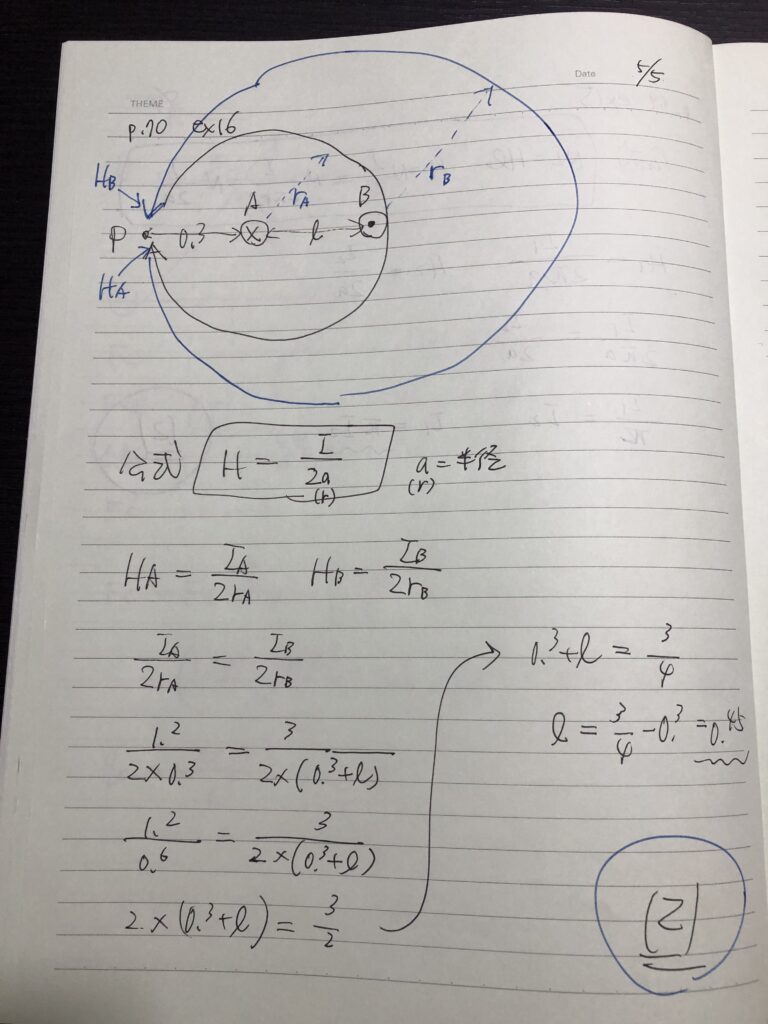 Date 5/5
THEME
p.70 ex16
HB
rA
rB
A
B
P 0.3 × l
HA
公式 H = I/2a (r) a = 半径 (r)
HA = IA/2rA HB = IB/2rB
IA/2rA = IB/2rB
1.2/2×0.3 = 3/2×(0.3+l)
1.2/0.6 = 3/2×(0.3+l)
2×(0.3+l) = 3/2
0.3+l = 3/4
l = 3/4 - 0.3 = 0.45
(2)